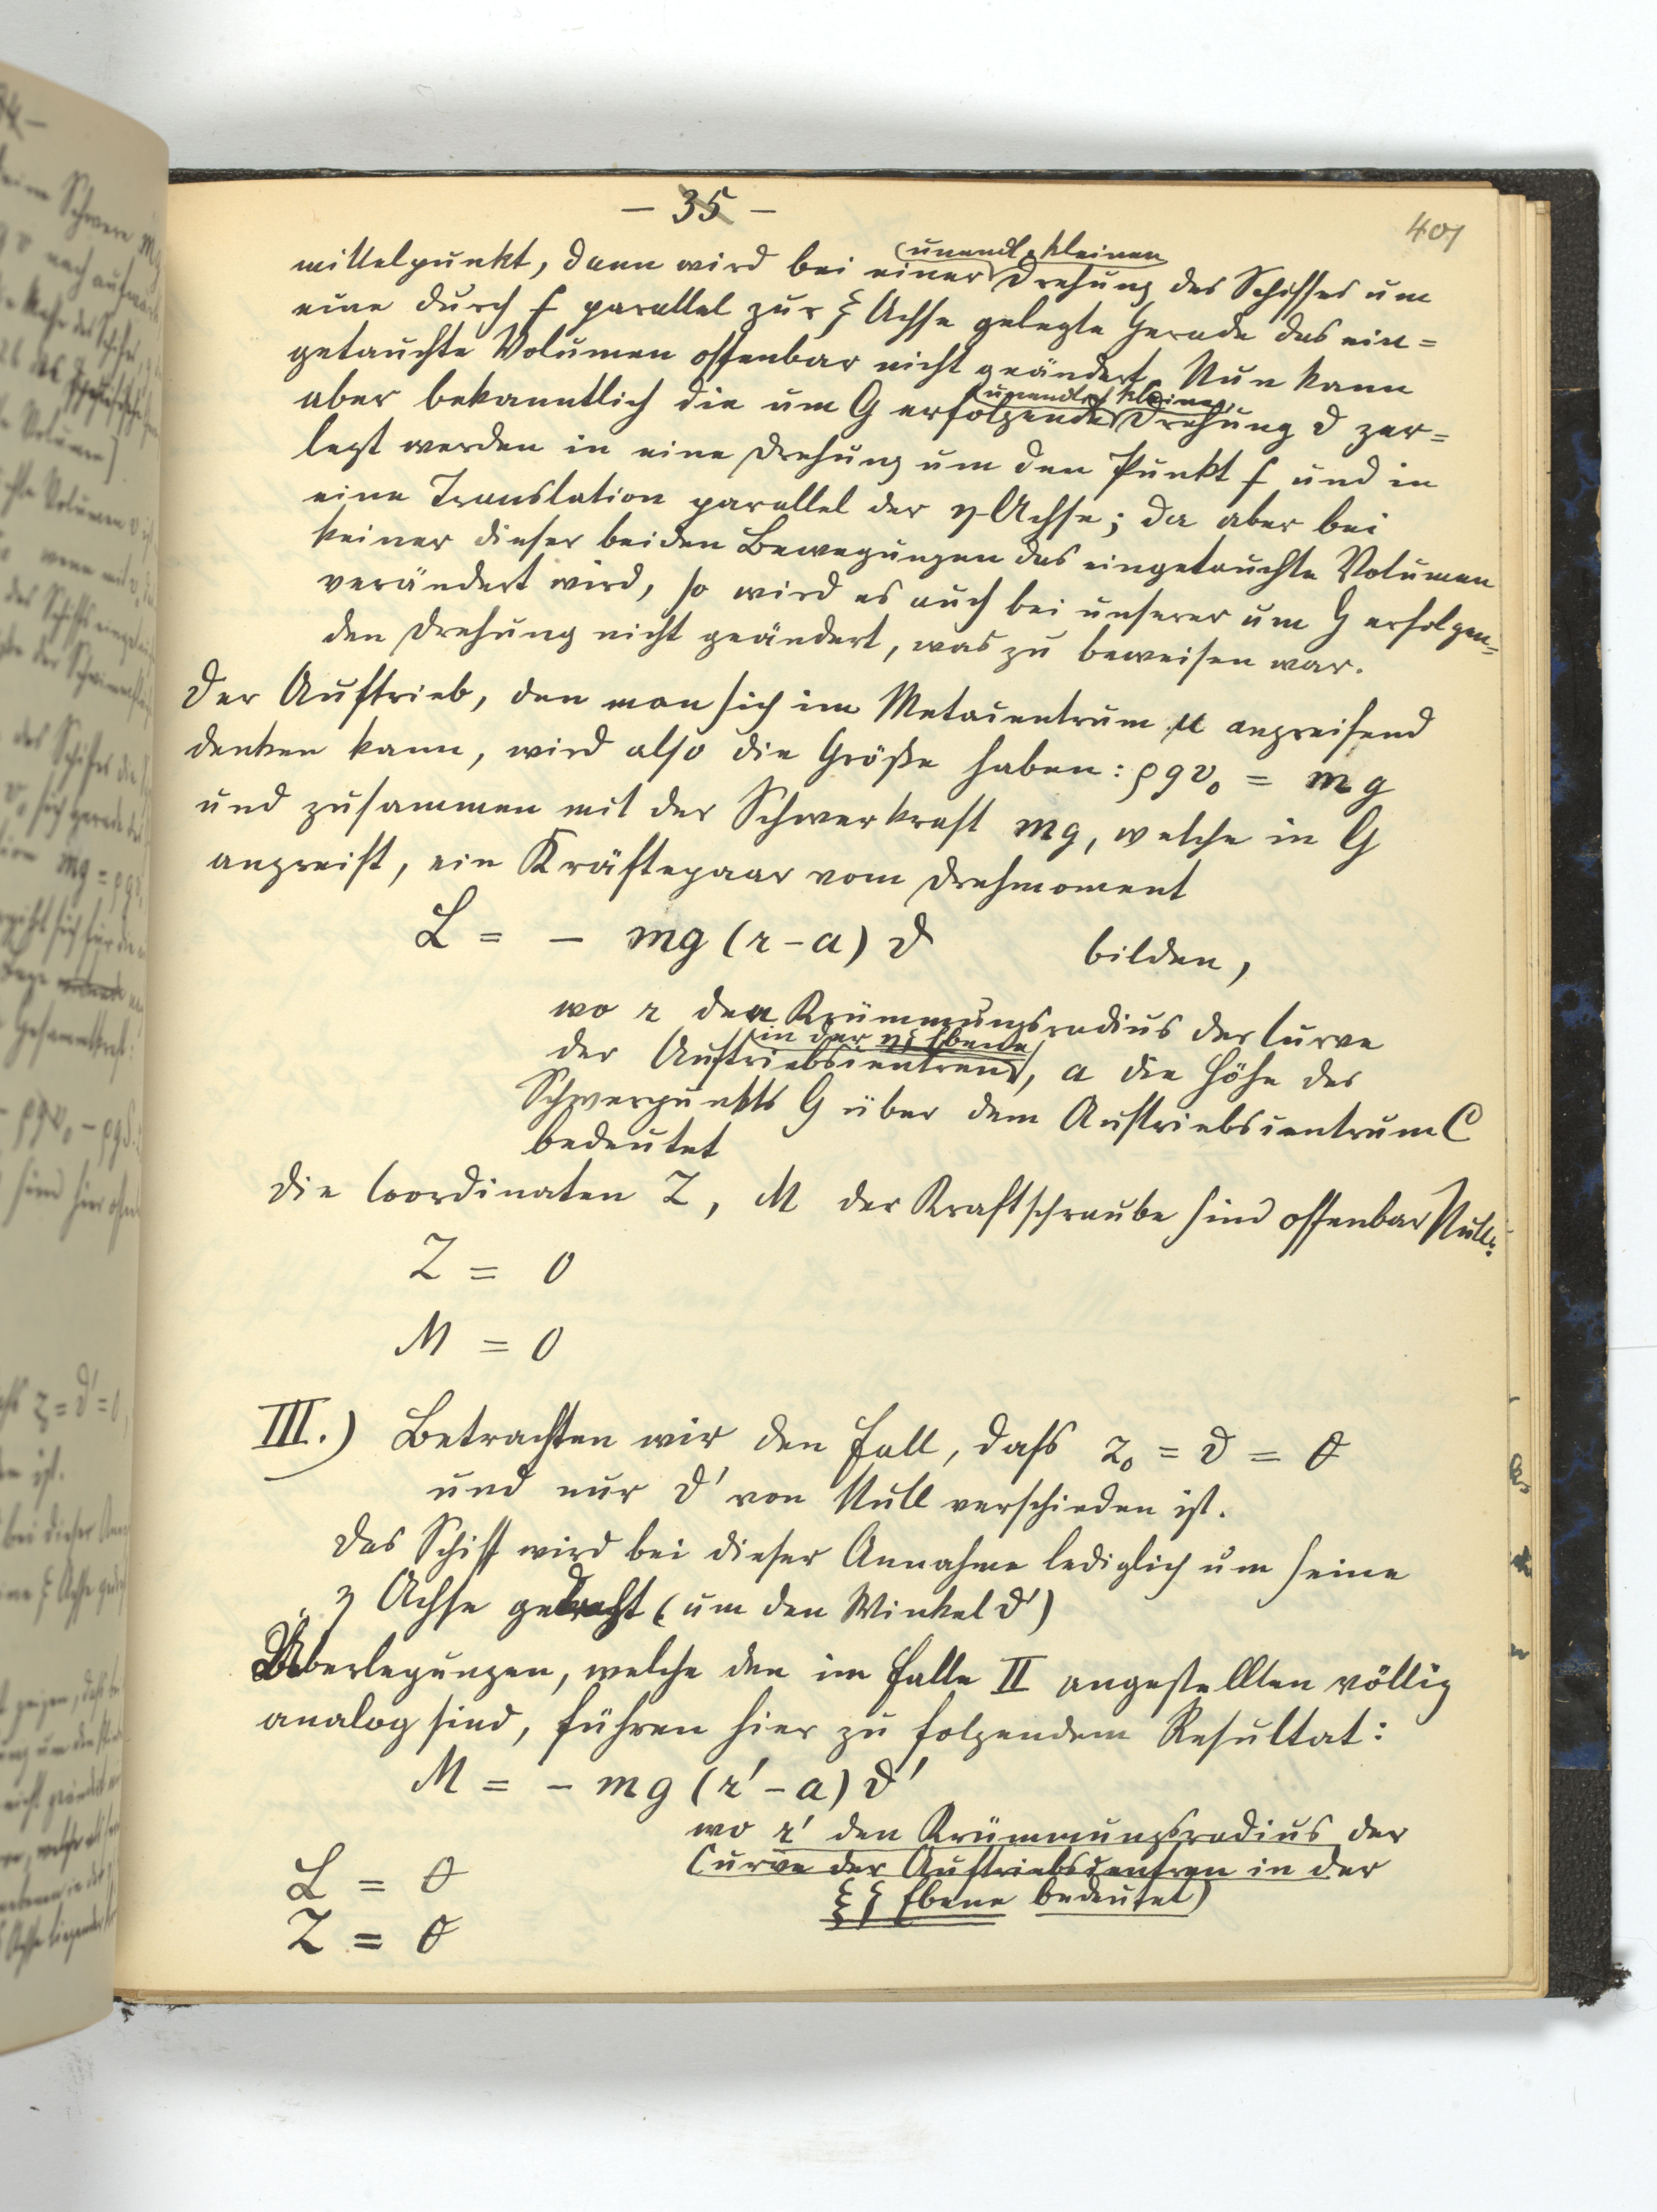 – 35 –
401
(unendl. kleinen
mittelpunkt, dann wird bei einer Drehung des Schiffes um
eine durch f parallel zur ξ Achse gelegte Gerade das ein=
getauchte Volumen offenbar nicht geändert. Nun kann
(unendl.) kleine
aber bekanntlich die um G erfolgende Drehung ϑ zer=
legt werden in eine Drehung um den Punkt f und in
eine Translation parallel der η-Achse; da aber bei
keiner dieser beiden Bewegungen das eingetauchte Volumen
verändert wird, so wird es auch bei unserer um G erfolgen=
den Drehung nicht geändert, was zu beweisen war.
Der Auftrieb, den man sich im Metacentrum μ angreifend
denken kann, wird also die Größe haben: ρgv₀ = mg
und zusammen mit der Schwerkraft mg, welche in G
angreift, ein Kräftepaar vom Drehmoment
L = – mg (r – a) ϑ bilden,
wo r den Krümmungsradius der Curve
in der ηζ Ebene
der Auftriebscentren, a die Höhe des
Schwerpunkts G über dem Auftriebscentrum C
bedeutet
Die Coordinaten Z, M der Kraftschraube sind offenbar Null:
Z = 0
M = 0
III.) Betrachten wir den Fall, dass z₀ = ϑ = 0
und nur ϑ' von Null verschieden ist.
Das Schiff wird bei dieser Annahme lediglich um seine
η Achse gedreht (um den Winkel ϑ')
Überlegungen, welche den im Falle II angestellten völlig
analog sind, führen hier zu folgendem Resultat:
M = – mg (r' – a) ϑ'
wo r' den Krümmungsradius der
Curve der Auftriebscentren in der
ξζ Ebene bedeutet)
L = 0
Z = 0